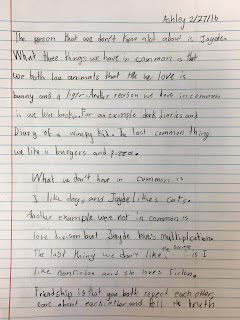 Ashley 2/27/18
The person that we don't know alot about is Jayde.
What three things we have in common is that
we both love animals that we love is
bunny and a tiger. Another reason we have in common
is we love books. For an example dork diaries and
Diary of a wimpy kid. The last common thing
we like is burgers and pizza.
What we don't have in common is
I like dogs, and Jayde likes cats.
Another example were not in common is
love divison but Jayde loves multiplication.
The last thing we don't like, the same is I
like nonficion and she loves ficion.
Friendship is that you both repect each other,
care about each other and tell the truth